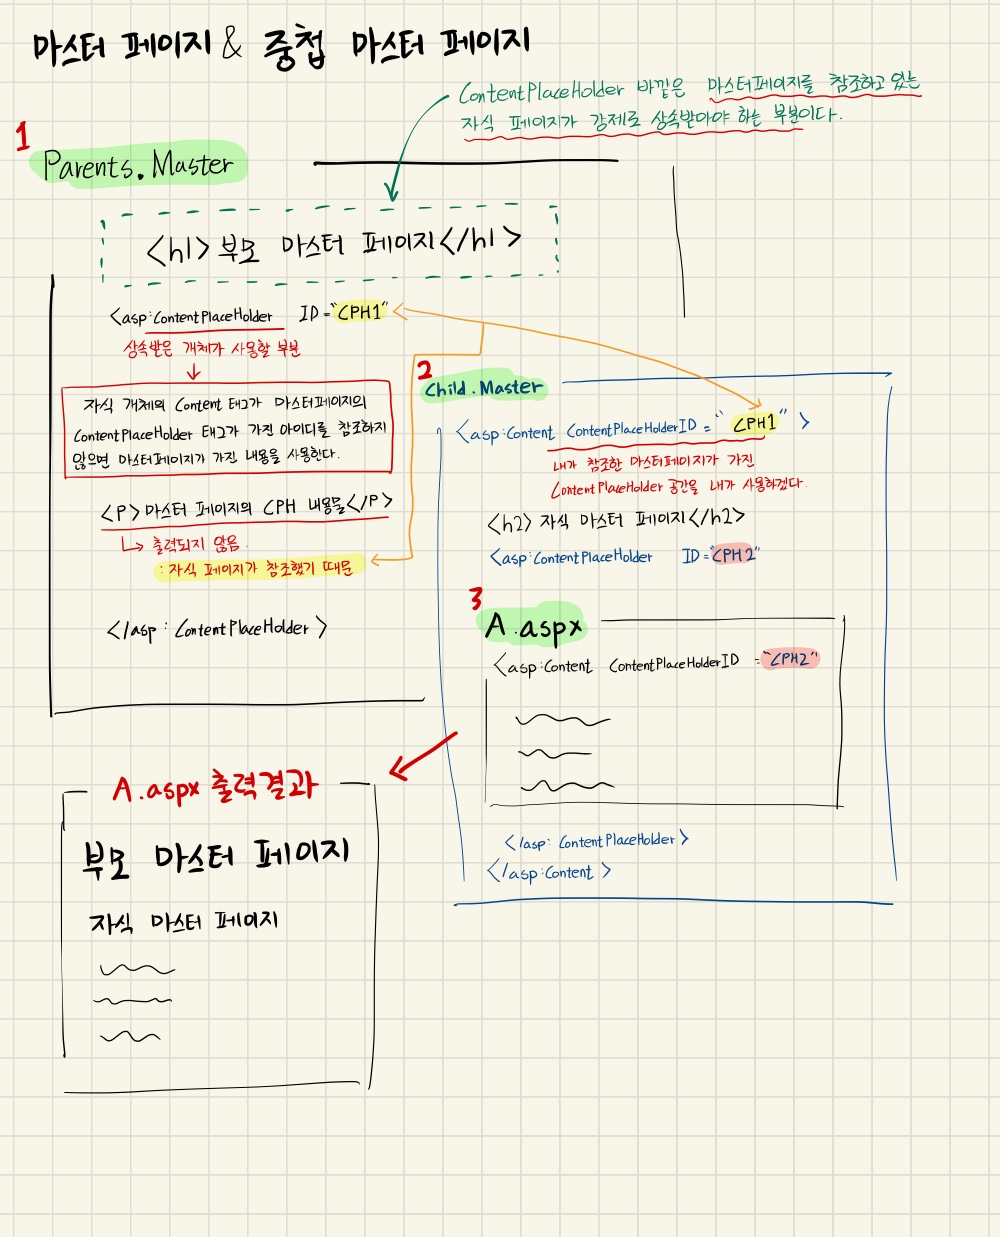 마스터 페이지 & 중첩 마스터 페이지
ContentPlaceHolder 바깥은 마스터페이지를 참조하고 있는
자식 페이지가 강제로 상속받아야 하는 부분이다.
1
Parents.Master
<h1>부모 마스터 페이지</h1>
<asp:ContentPlaceHolder ID="CPH1"
상속받은 개체가 사용할 부분
자식 개체의 Content 태그가 마스터페이지의
ContentPlaceHolder 태그가 가진 아이디를 참조하지
않으면 마스터페이지가 가진 내용을 사용한다.
<P>마스터 페이지의 CPH 내용물</P>
출력되지 않음.
: 자식 페이지가 참조했기 때문
</asp:ContentPlaceHolder>
2
Child.Master
<asp:Content ContentPlaceHolderID="CPH1">
내가 참조한 마스터페이지가 가진
ContentPlaceHolder 공간을 내가 사용하겠다.
<h2>자식 마스터 페이지</h2>
<asp:ContentPlaceHolder ID="CPH2"
3
A.aspx
<asp:Content ContentPlaceHolderID="CPH2"
</asp:ContentPlaceHolder>
</asp:Content>
A.aspx 출력결과
부모 마스터 페이지
자식 마스터 페이지